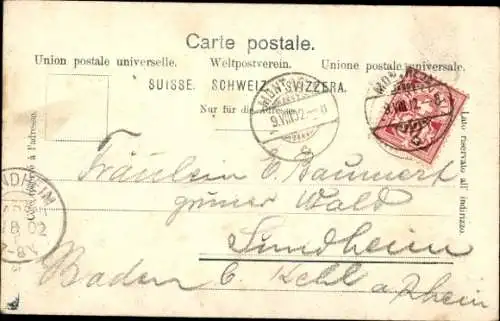 Carte postale.
Union postale universelle. Weltpostverein. Unione postale universale.
SUISSE. SCHWEIZ. SVIZZERA.
Nur für die Adresse.
Côté réservé à l'adresse.
Lato riservato all' indirizzo.
9.VIII.02-8
Fräulein E. Baumert
grüner Wald
Sundheim
Baden b. Kehl a/Rhein